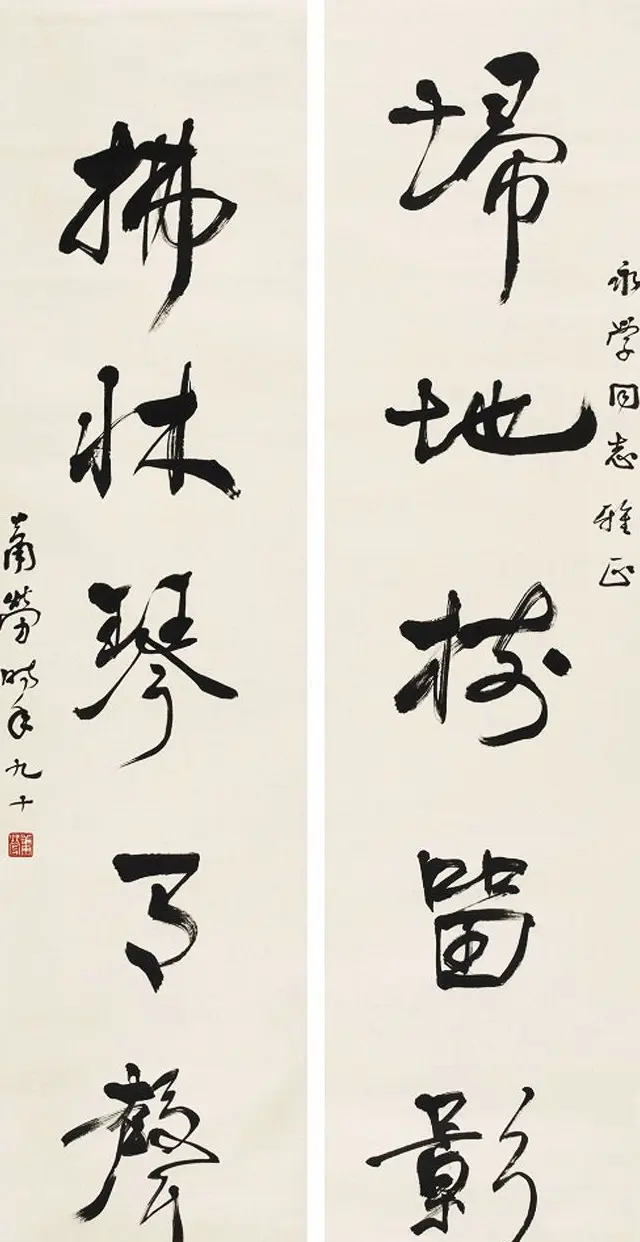 永学同志雅正
埽地樹留影
拂牀琴有聲
蕭勞時年九十